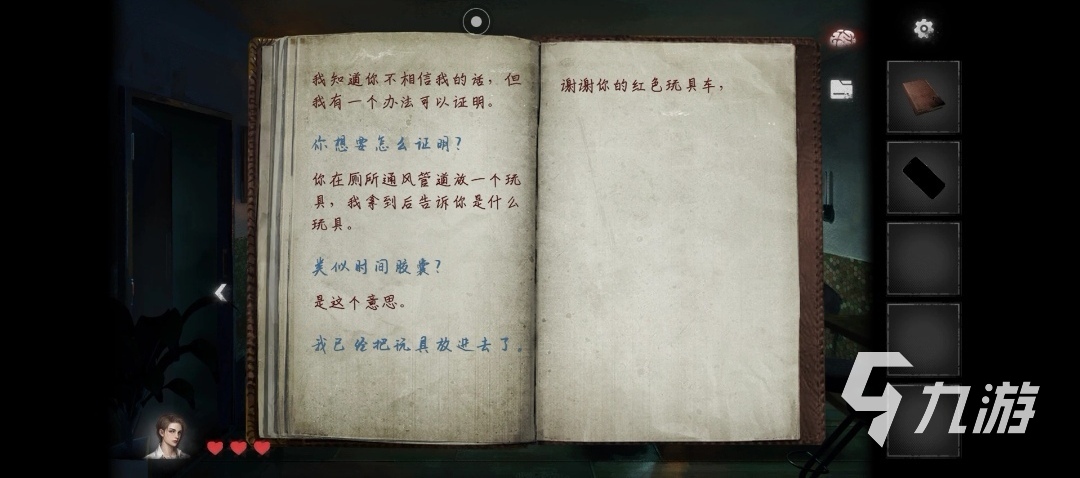 我知道你不相信我的话，但
我有一个办法可以证明。
你想要怎么证明？
你在厕所通风管道放一个玩
具，我拿到后告诉你是什么
玩具。
类似时间胶囊？
是这个意思。
我已经把玩具放进去了。
谢谢你的红色玩具车，
九游